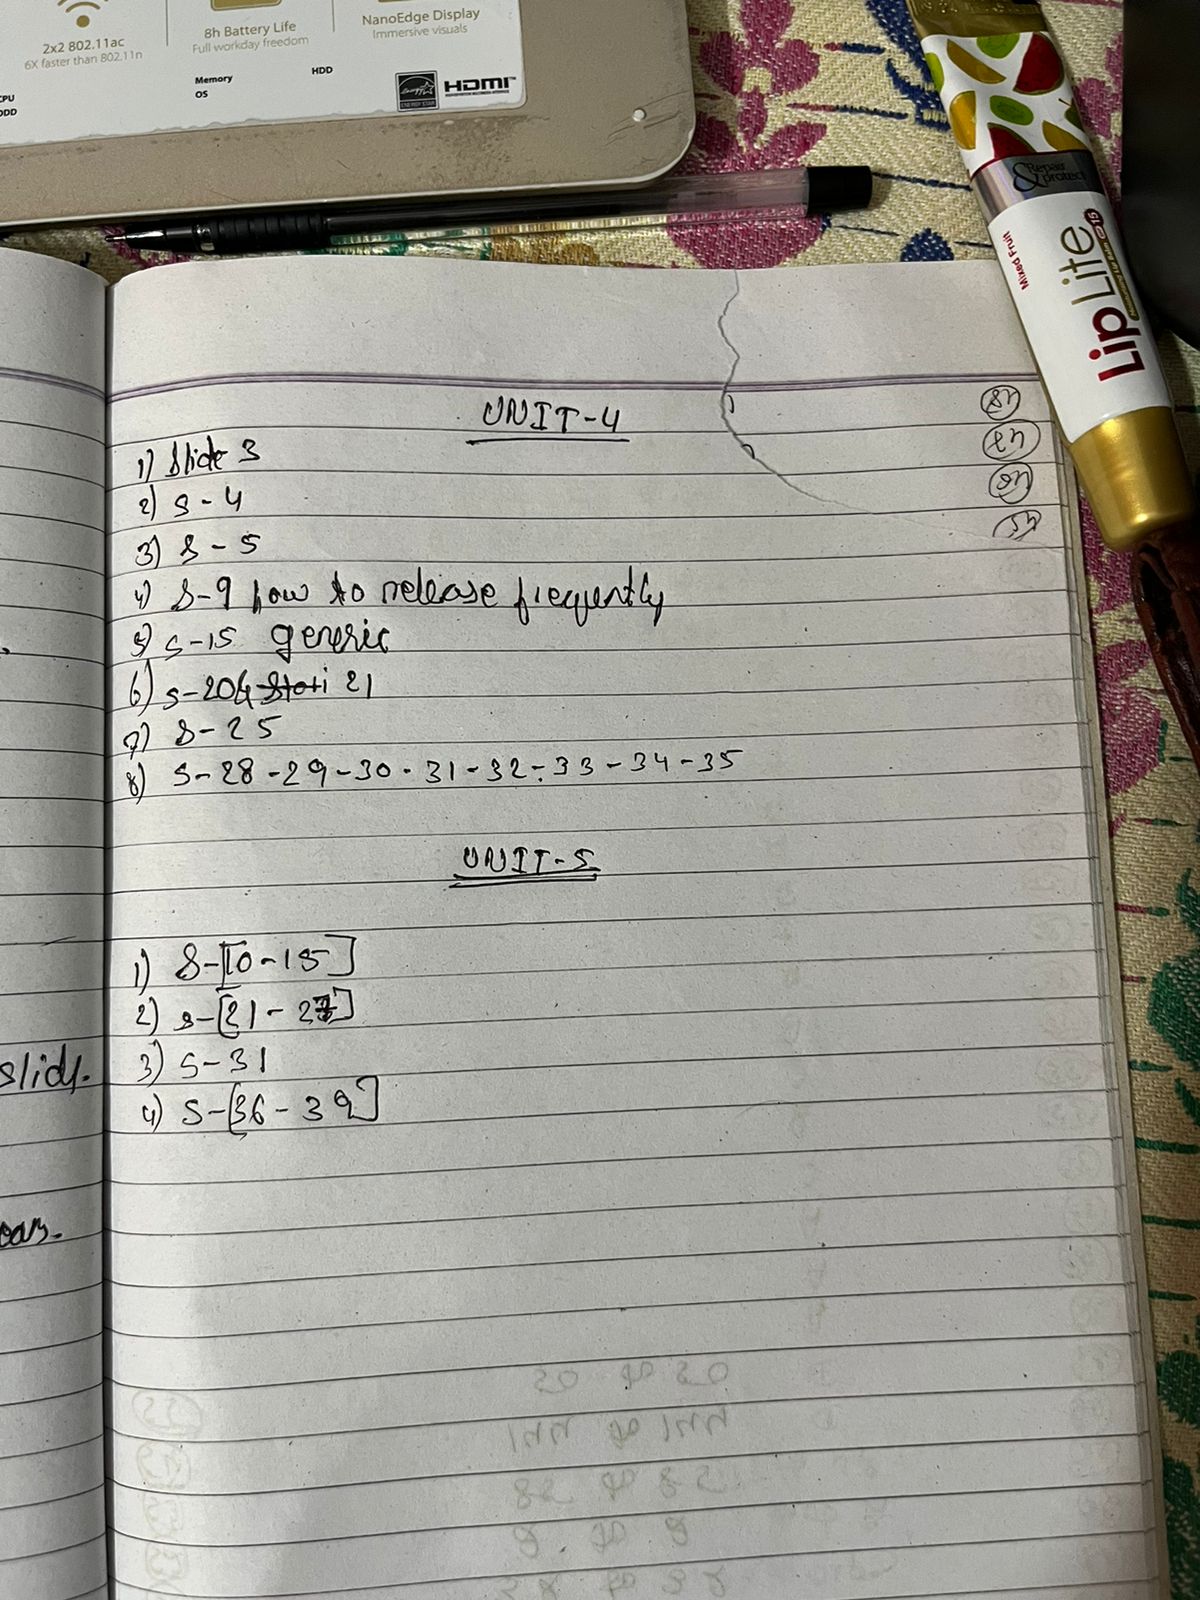 2x2 802.11ac
6X faster than 802.11n
8h Battery Life
Full workday freedom
NanoEdge Display
Immersive visuals
CPU
ODD
Memory
OS
HDD
ENERGY STAR
HDMI
Repair & protect
Mixed Fruit
LipLite
15
UNIT-4
1) Slide 3
2) S-4
3) S-5
4) S-9 how to release frequently
5) S-15 generic
6) S-20& 21
7) S-25
8) S-28-29-30-31-32-33-34-35
UNIT-5
1) S-[10-15]
2) S-[21-27]
3) S-31
4) S-[36-39]
slide.